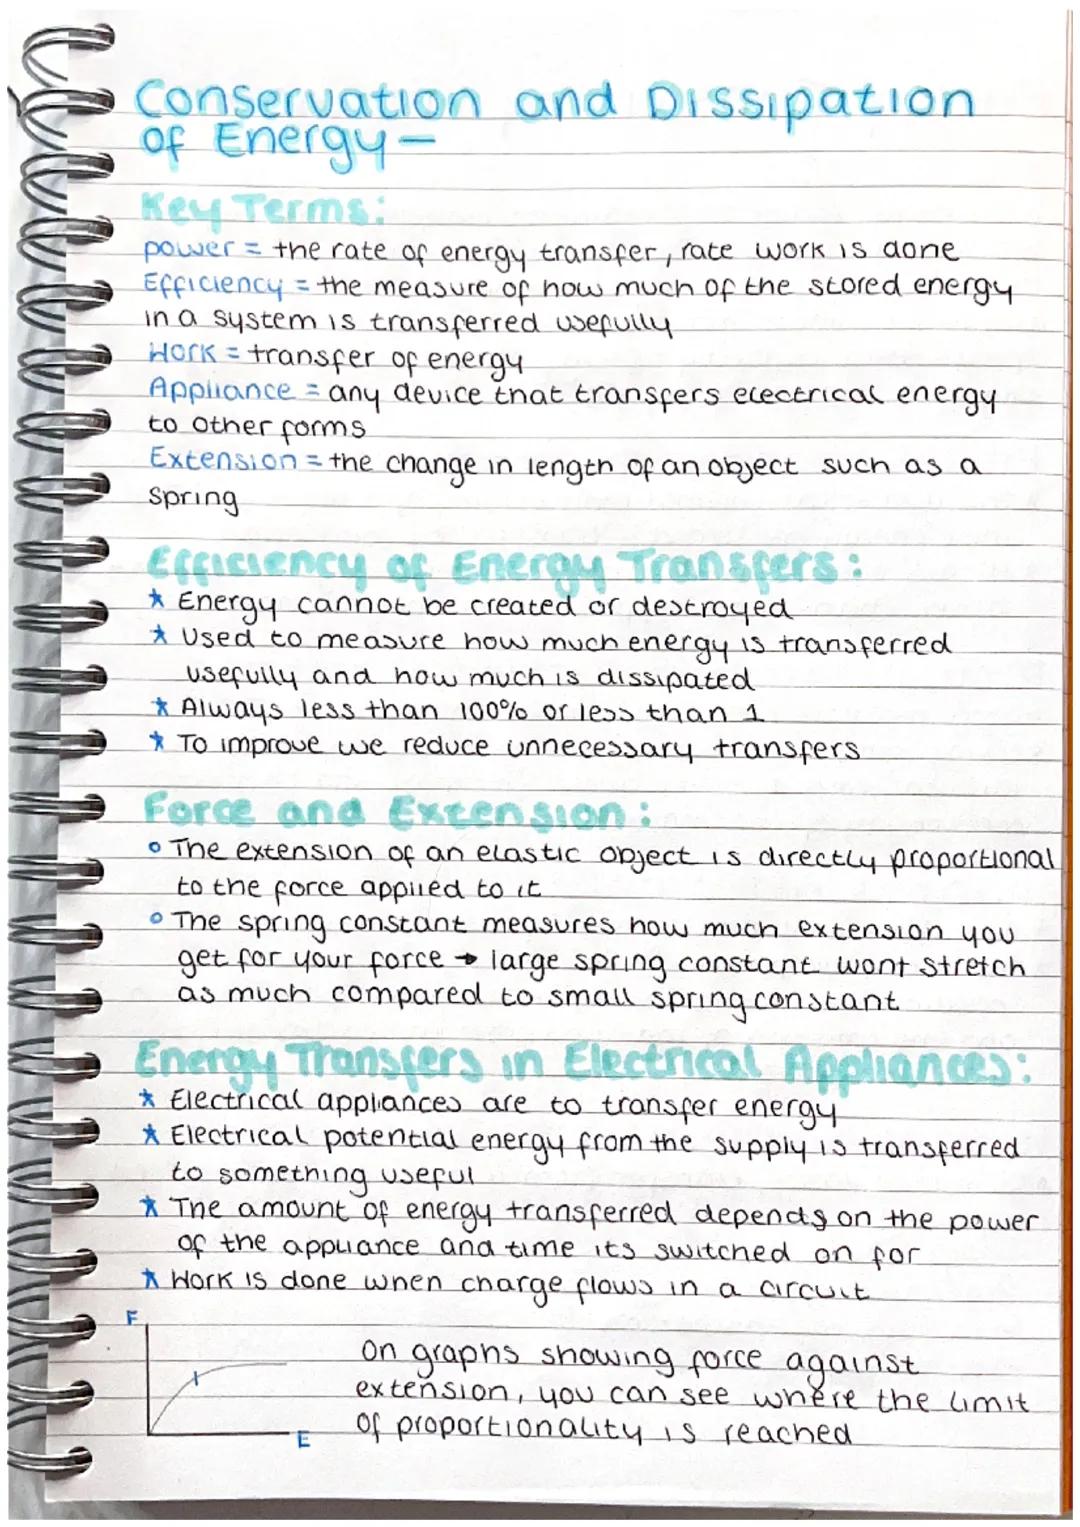 Conservation and Dissipation
of Energy -
Key Terms:
power = the rate of energy transfer, rate work is done
Efficiency = the measure of how much of the stored energy
in a system is transferred usefully
Work = transfer of energy
Appliance = any device that transfers electrical energy
to other forms
Extension = the change in length of an object such as a
spring
Efficiency of Energy Transfers:
* Energy cannot be created or destroyed
* Used to measure how much energy is transferred
usefully and how much is dissipated
* Always less than 100% or less than 1
* To improve we reduce unnecessary transfers
Force and Extension:
° The extension of an elastic object is directly proportional
to the force applied to it
° The spring constant measures how much extension you
get for your force → large spring constant wont stretch
as much compared to small spring constant
Energy Transfers in Electrical Appliances:
* Electrical appliances are to transfer energy
* Electrical potential energy from the supply is transferred
to something useful
* The amount of energy transferred depends on the power
of the appliance and time its switched on for
* Work is done when charge flows in a circuit
F
On graphs showing force against
extension, you can see where the limit
of proportionality is reached
E